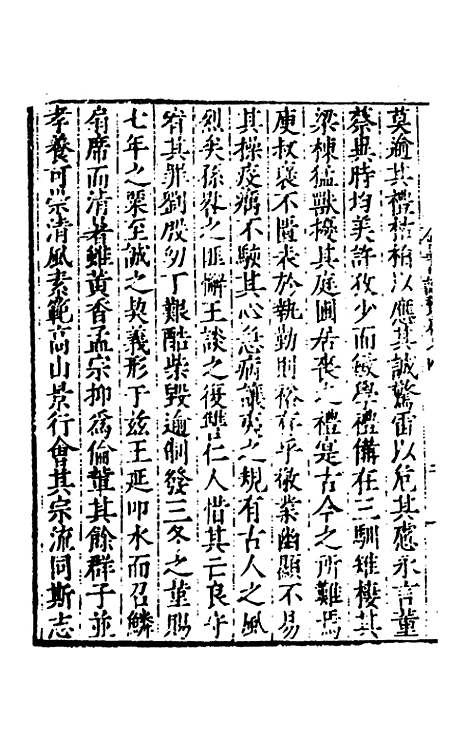 莫逾其禮枯柏以應其誠驚雷以危其慮永言董
蔡異時均美許孜少而敏學禮備在三馴雉棲其
梁棟猛獸擾其庭圃居喪之禮寔古今之所難焉
庾叔褒不匱表於執勤則裕存乎敬業幽顯不易
其操疫癘不駭其心急病讓夷之規有古人之風
烈矣孫晷之匪懈王談之復讐仁人惜其亡良守
宥其罪劉殷幼丁艱酷柴毀逾制發三冬之堇賜
七年之粟至誠之契義形于兹王延叩氷而召鱗
扇席而清暑雖黃香孟宗抑爲倫輩其餘群子並
孝養可崇清風素範高山景行會其宗流同斯志